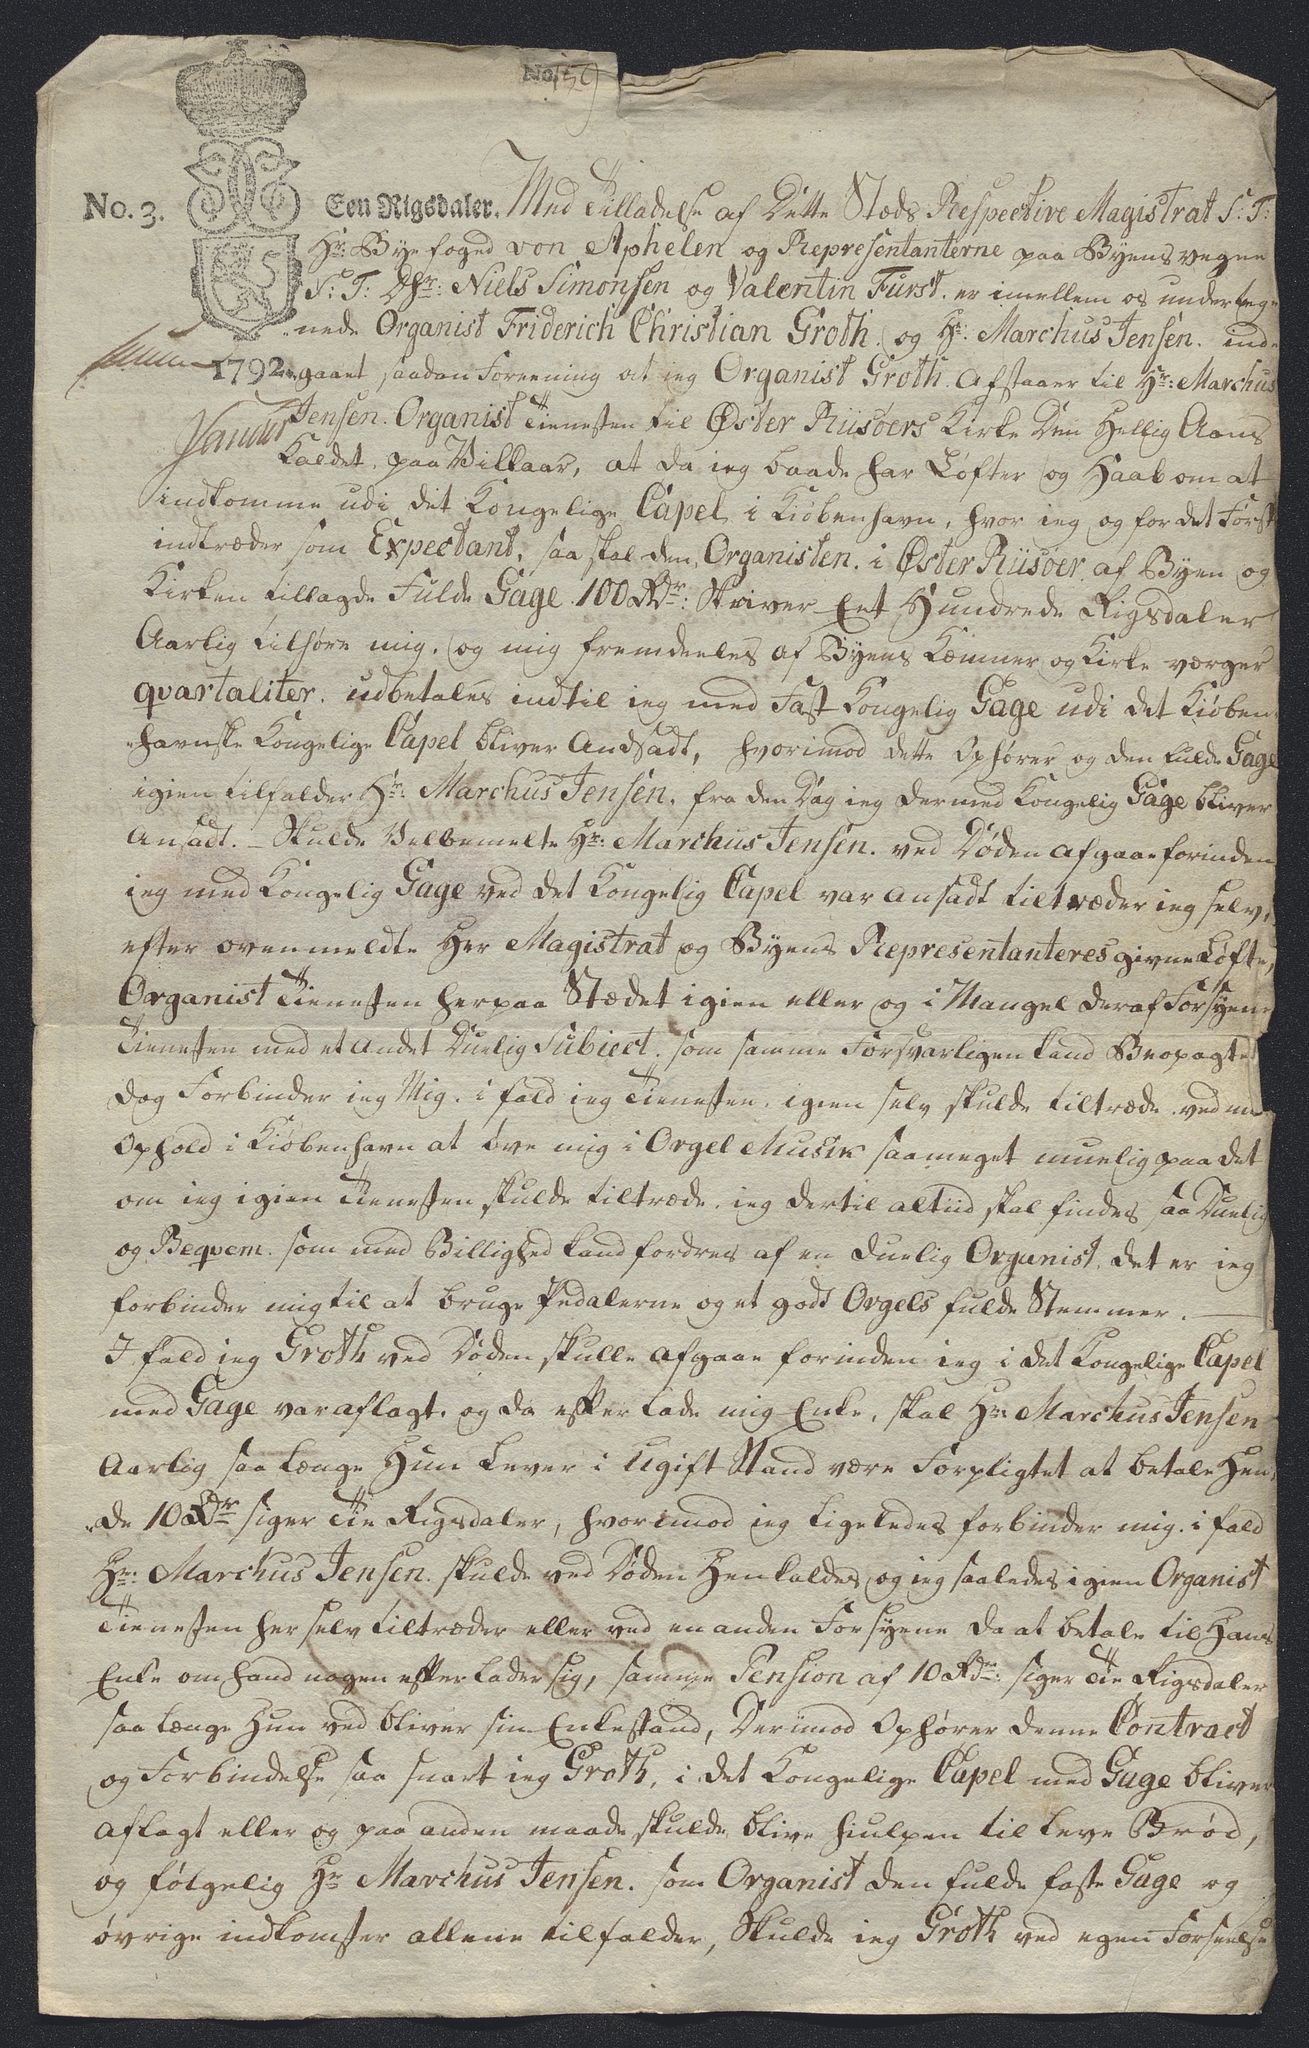 No 59
No. 3. Een Rigsdaler. Med Tilladelse af Dette Stæds Respective Magistrat S: T:
Hr: Bye foged von Aphelen og Representanterne paa Byens vegne
S: T: Dhr: Niels Simonsen og Valentin Fürst. er imellem os underteg-
nede Organist Friderich Christian Groth. og Hr: Marchus Jensen. ind-
1792. gaaet saadan Foreening at ieg Organist Groth. Afstaaer til Hr: Marchus
Jensen. Organist Tienesten til Øster Riisøers Kirke Den Hellig Aand
Kaldet, paa Vilkaar, at da ieg baade har Løfter og Haab om at
indkomme udi det Kongelige Capel i Kiøbenhavn, hvor ieg og for det Først
indtræder som Expectant, saa skal den, Organisten. i Øster Riisøer af Byen og
Kirken tillagde Fulde Gage 100 Rdr: Skriver Eet Hundrede Rigsdaler
Aarlig tilhøre mig. og mig fremdeeles af Byens Kemner og Kirke værger
qvartaliter. udbetales indtil ieg med Fast Kongelig Gage udi det Kiøben-
havnske Kongelige Capel bliver Andsadt, hvorimod dette Ophører og den fulde Gage
igien tilfalder Hr: Marchus Jensen. fra den Dag ieg dermed Kongelig Gage bliver
Ansadt. – Skulde Velbemelte Hr: Marchus Jensen. ved Døden afgaae forinden
ieg med Kongelig Gage ved det Kongelig Capel var ansadt tiltræder ieg selv,
efter ovenmeldte Herr Magistrat og Byens Representanteres givne Løfte,
Organist Tienesten herpaa Stædet igien eller og i Mangel deraf Forsyene
Tienesten med et andet Duelig Subiect. som samme Forsvarligen kand
dog Forbinder ieg Mig. i fald ieg Tienesten. igien selv skulde tiltræde. ved
Ophold i Kiøbenhavn at øve mig i Orgel Musik saameget muelig paa det
om ieg igien Tienesten skulde tiltræde. ieg dertil altiid skal findes saa Duelig
og Beqvem. som med Billighed kand fordres af en duelig Organist. det er ieg
forbinder mig til at bruge Pedalerne og et godt Orgels fulde Stemmer. —
I fald ieg Groth ved Døden skulle afgaae forinden ieg i det Kongelige Capel
med Gage var aflagt. og da efterlade mig Enke, skal Hr: Marchus Jensen
Aarlig saa længe Hun Lever i Ugift Stand være Forpligtet at betale Hen-
de 10 Rdr siger Tie Rigsdaler, hvorimod ieg ligeledes forbinder mig. i fald
Hr: Marchus Jensen. skulde ved Døden Henkaldes, og ieg saaledes igien Organist
Tienesten her selv tiltræder eller ved en anden Forsyene da at betale til Hans
Enke om hand nogen efterlader sig, samme Pension af 10 Rdr: siger Tie Rigsdaler
saa længe Hun ved bliver sin Enkestand, Derimod Ophører denne Contract
og Forbindelse saa snart ieg Groth, i det Kongelige Capel med Gage bliver
Aflagt eller og paa anden maade skulde blive hiulpen til Leve Brød,
og følgelig Hr Marchus Jensen. som Organist den fulde faste Gage og
øvrige indkomster allene tilfalder, Skulde ieg Groth ved egen Forseelse